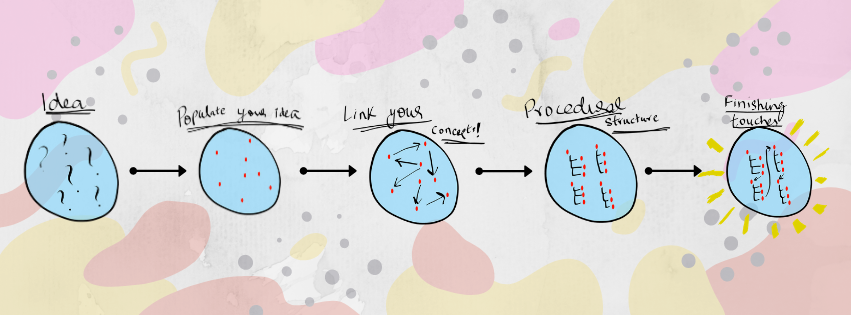 Idea
Populate your idea
Link your
Concepts!
Procedural
structure
Finishing
touches